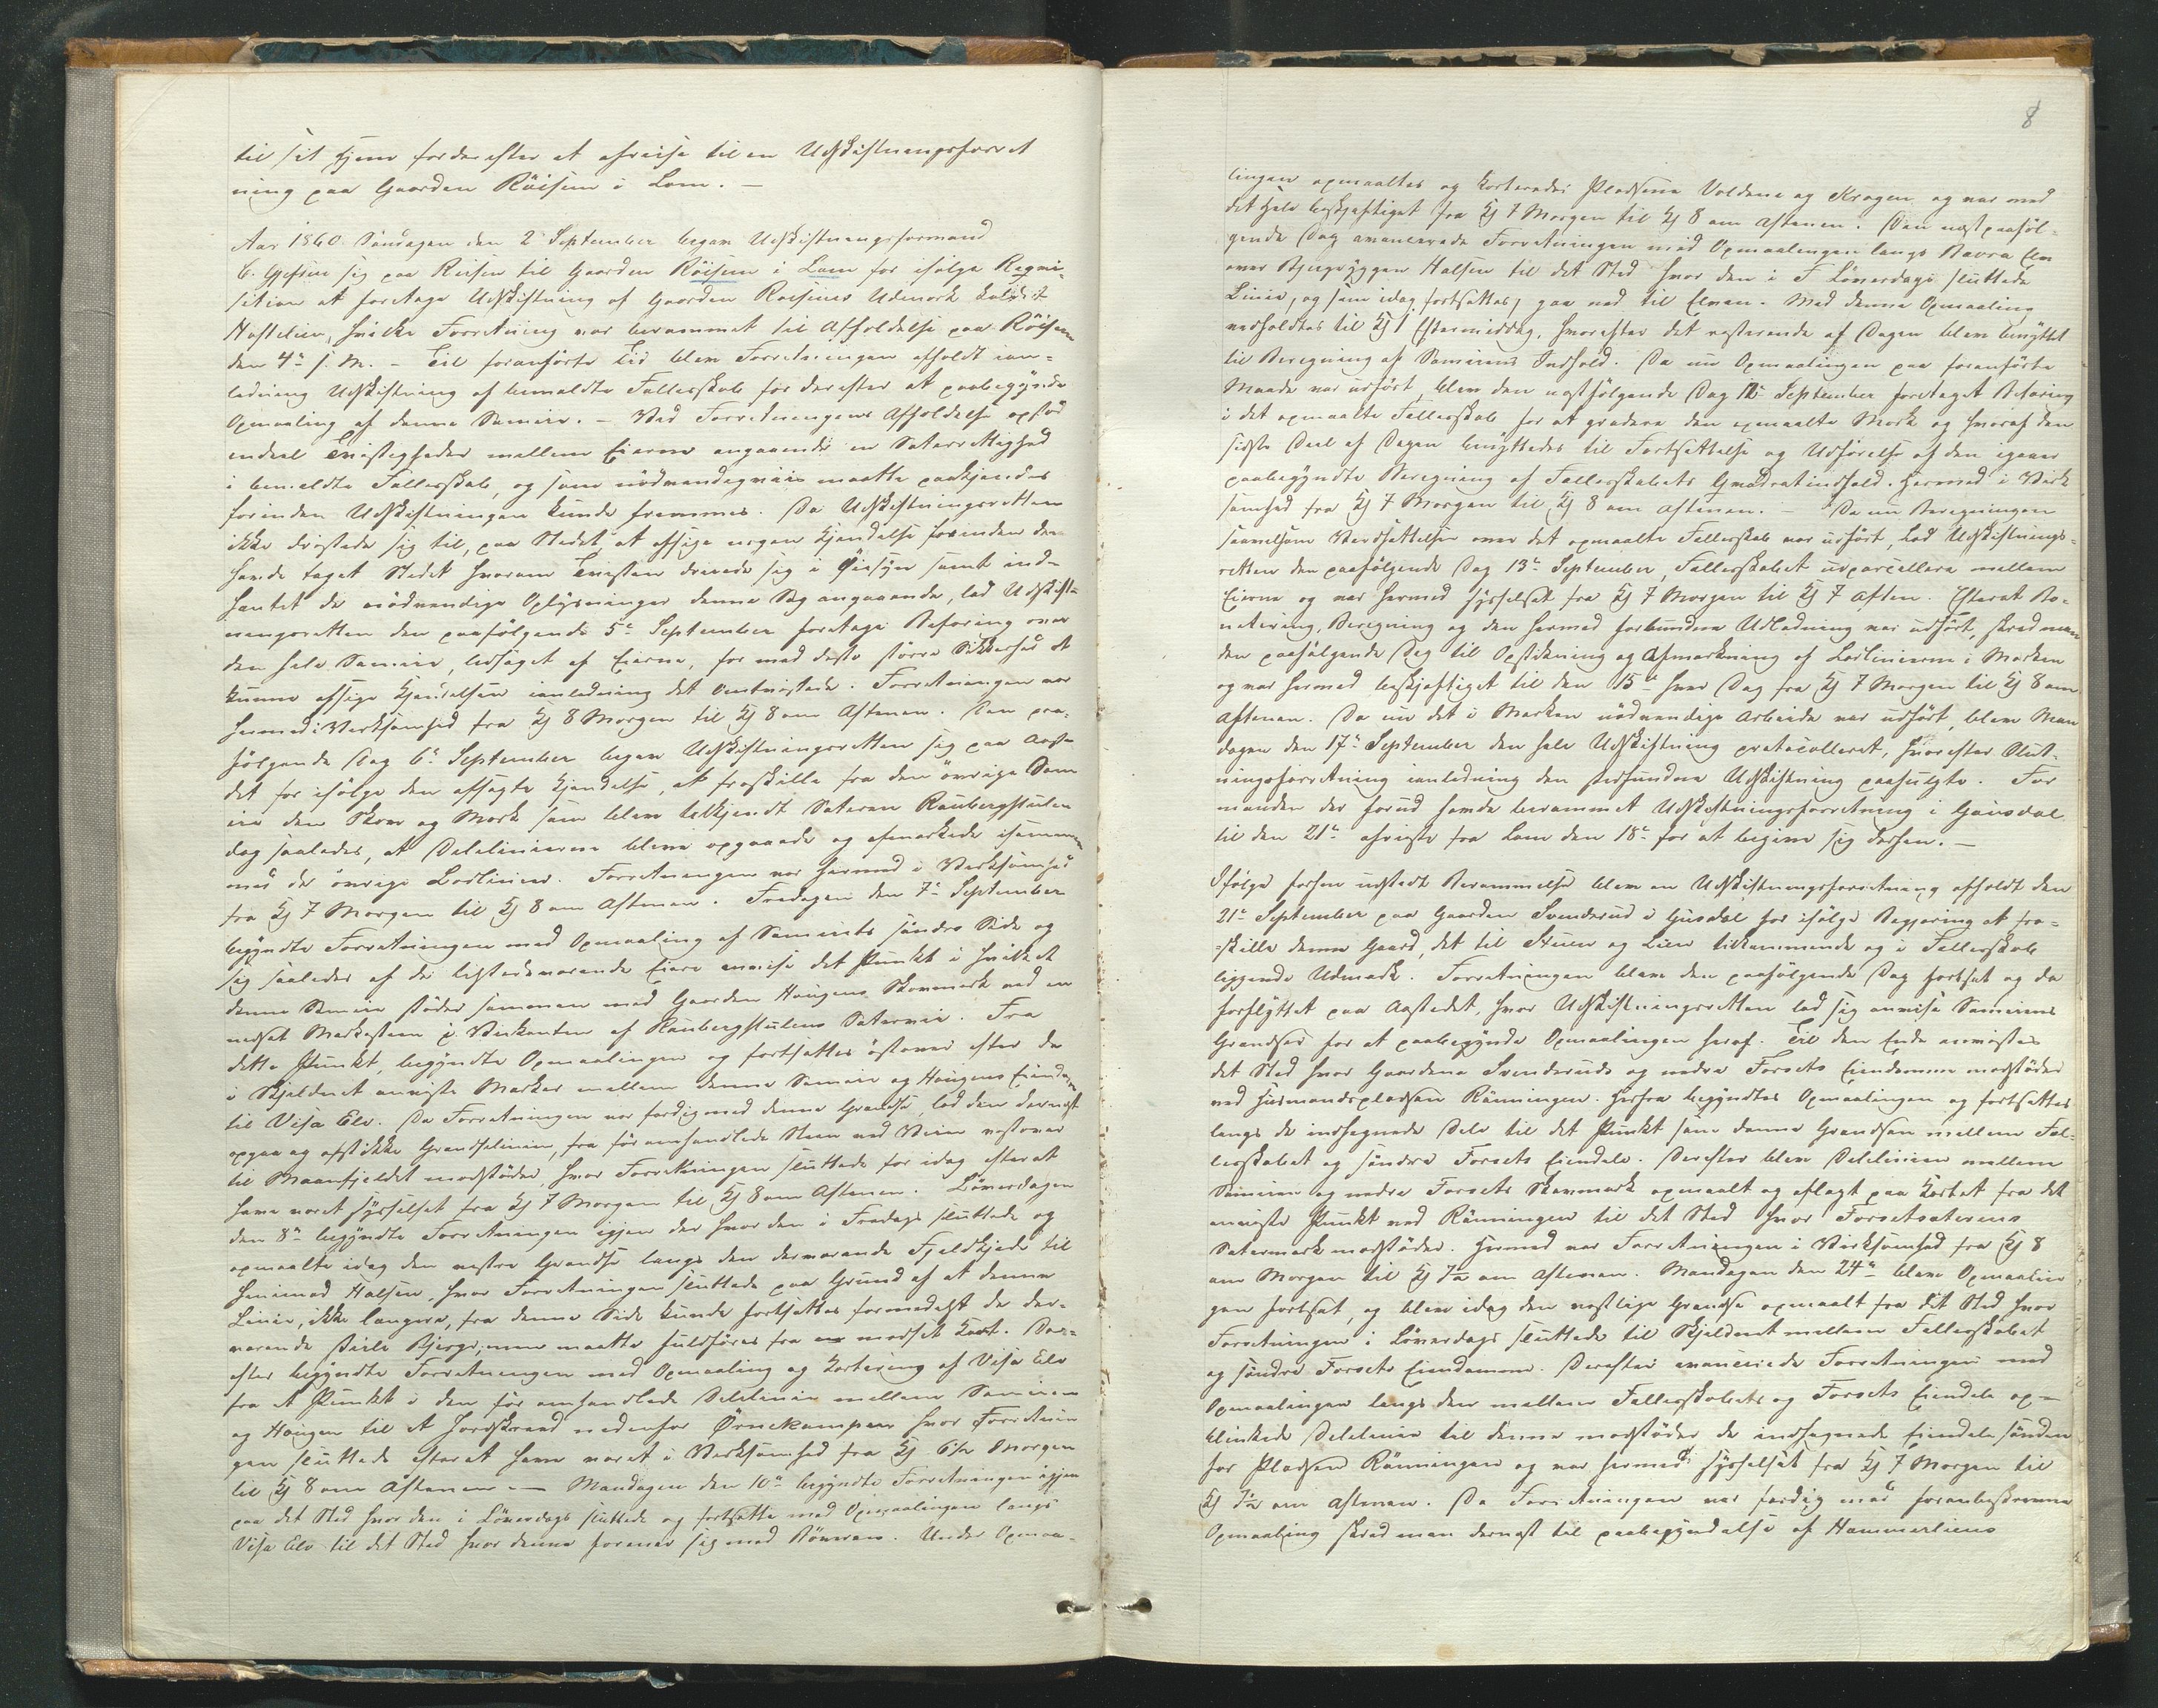 til sit Hjem for derefter at afreise til en Udskiftningsforret
ning paa Gaarden Röisum i Lom. –
Aar 1860 Søndagen den 2 September begav Udskiftningsformand
C. Gjessen sig paa Reisen til Gaarden Röisum i Lom for ifølge Reqvi-
sition at foretage Udskiftning af Gaarden Roisums Udmark kaldet
hvilke Forretning var berammet til Afholdelse paa Röisum
den 4de s. M. – Til foranførte Tid blev Forretningen afholdt ian-
ledning Udskiftning af bemeldte Fælleskab for derefter at paabegynde
Opmaaling af denne Sameie. – Ved Forretningens Afholdelse opstod
endeel Tvistigheder mellem Eierne angaaende en Sæterrettighed
i bemeldte Fælleskab, og som nødvendigviis maatte paakjendes
forinden Udskiftningen kunde fremmes. Da Udskiftningsretten
ikke dristede sig til, paa Stedet at afsige nogen Kjendelse forinden den
havde taget Stedet hvorom Tvisten dreiede sig i Øiesyn samt ind-
hentet de nødvendige Oplysninger denne Sag angaaende, lod Udskift-
ningsretten den paafølgende 5te September foretage Befaring over
den hele Sameie, ledsaget af Eierne, for med desto større Sikkerhed at
kunne afsige Kjendelsen ianledning det omtvistede. Forretningen var
hermed i Verksomhed fra Kl 8 Morgen til Kl 8 om Aftenen. Den paa-
følgende Dag 6te September begav Udskiftningsretten sig paa Aaste
det for ifølge den afsagte Kjendelse, at fraskille fra den øvrige Sam
eie den Skov og Mark som blev tilkjendt Sæteren Raubergstulen
dog saaledes, at Delelinierne bleve opgaaede og afmerkede isammen
med de øvrige Lodlinier. Forretningen var hermed i Verksomhed
fra Kl 7 Morgen til Kl 8 om Aftenen. Fredagen den 7de September
begyndte Forretningen med Opmaaling af Sameiets søndre Side og
sig saaledes af de tilstedeværende Eiere anvise det Punkt i hvilket
denne Sameie støder sammen med Gaarden Haugens Skovmark ved en
nedsat Markesteen i Veikanten af Raubergstulens Sæterveie. Fra
dette Punkt, begyndte Opmaalingen og fortsattes østover efter de
i Skjellet anviste Marker mellem denne Sameie og Haugens Eiendom
til Visa Elv. Da Forretningen var færdig med denne Grændse, lod den dernæst
opgaa og afstikke Grændselinien, fra før omhandlede Steen ved Veien vestover
til Maanfjeldet modstøder, hvor Forretningen sluttede for idag efterat
have været sysselsat fra Kl 7 Morgen til Kl 8 om Aftenen. Löverdagen
den 8de begyndte Forretningen igjen der hvor den i Fredags sluttede og
opmaalte idag den vestre Grændse langs den derværende Fjeldkjede til
henimod Halsen, hvor Forretningen sluttede paa Grund af at denne
Linie, ikke længere, fra denne Side kunde fortsættes formedelst de der-
værende steile Bjerge, men maatte fuldføres fra en modsat Kant. Der-
efter begyndte Forretningen med Opmaaling og Kartering af Visa Elv
fra et Punkt i den før omhandlede Delelinie mellem Sameien
og Haugen til et Jordskræd nedenfor Ørnekampen hvor Forretnin
gen sluttede efterat have været i Verksomhed fra Kl 6½ Morgen
til Kl 8 om Aftenen. – Mandagen den 10de begyndte Forretningen igjen
paa det Sted hvor den i Löverdags sluttede og fortsatte med Opmaalingen langs
Visa Elv til det Sted hvor denne forener sig med Bövraen. Under Opmaa-
8
lingen opmaaltes og karteredes Pladsene Voldene og Kragen og var med
det Hele beskjæftiget fra Kl 7 Morgen til Kl 8 om Aftenen. Den næstpaaføl-
gende Dag avancerede Forretningen med Opmaalingen langs Bævra Elv
over Bjergryggen Halsen til det Sted hvor den i F Löverdags sluttede
Linie, og som idag fortsattes, gaa ned til Elven. Med denne Opmaaling
vedholdtes til Kl 1 Eftermiddag, hvorefter det resterende af Dagen blev benyttet
til Beregning af Sameiens Indhold. Da nu Opmaalingen paa foranførte
Maade var udført, blev den næstfølgende Dag 12te September foretaget Befaring
i det opmaalte Fælleskab for at gradere den opmaalte Mark og hvoraf den
sidste Deel af Dagen benyttedes til Fortsættelse og Udførelse af den igaar
paabegyndte Beregning af Fælleskabets Qvadratindhold. Hermed i Virk
somhed fra Kl 7 Morgen til Kl 8 om Aftenen. – Da nu Beregningen
saavelsom Verdsættelsen over det opmaalte Fælleskab var udført, lod Udskiftnings-
retten den paafølgende Dag 13de September, Fælleskabet udparcellere mellem
Eierne og var hermed sysselsat fra Kl 7 Morgen til Kl 7 Aften. Efterat Bo-
nitering, Beregning og den hermed forbundne Udlodning var udført, skred man
den paafølgende Dag til Opstikning og Afmerkning af Lodlinierne i Marken
og var hermed beskjæftiget til den 15de hver Dag fra Kl 7 Morgen til Kl 8 om
Aftenen. Da nu det i Marken nødvendige Arbeide var udført, blev Man
dagen den 17de September den hele Udskiftning protocolleret, hvorefter Slut-
ningsforretning ianledning den stedfundne Udskiftning paafulgte. For
manden der forud havde berammet Udskiftningsforretning i Gausdal
til den 21de afreiste fra Lom den 18de for at begive sig derhen. –
Ifølge forhen udstedt Berammelse blev en Udskiftningsforretning afholdt den
21de September paa Gaarden Svenderud i Gusdal for ifølge Begjæring at fra-
-skille denne Gaard, det til Stuen og Lien tilkommende og i Fælleskab
liggende Udmark. Forretningen blev den paafølgende Dag fortsat og da
forflyttet paa Aastedet, hvor Udskiftningsretten lod sig anvise Sameiens
Grændser for at paabegynde Opmaalingen heraf. Til den Ende anvistes
det Sted hvor Gaardene Svenderuds og nedre Forsets Eiendomme modstøder
ved Husmandspladsen Rönningen. Herfra begyndtes Opmaalingen og fortsattes
langs de indhegnede Dele til det Punkt som danne Grændsen mellem Fæl-
lesskabet og søndre Forsets Eiendele. Derefter blev Delelinien mellem
Sameien og nedre Forsets Skovmark opmaalt og aflagt paa Kartet fra det
anviste Punkt ved Rönningen til det Sted hvor Forsetsæterens
Sætermark modstøder. Hermed var Forretningen i Virksomhed fra Kl 8
om Morgen til Kl 7½ om Aftenen. Mandagen den 24de blev Opmaalin
gen fortsat, og blev idag den vestlige Grændse opmaalt fra det Sted hvor
Forretningen i Löverdags sluttede til Skjellet mellem Fælleskabet
og søndre Forsets Eiendomme. Derefter avancerede Forretningen med
Opmaalingen langs den mellem Fælleskabets og Forsets Eiendele op-
blinkede Delelinie til denne modstøder de indhegnede Eiendele sønden
for Pladsen Rönningen og var hermed sysselsat fra Kl 7 Morgen til
Kl 7½ om Aftenen. Da Forretningen var færdig med foranbeskrevne
Opmaaling skred man dernæst til paabegyndelse af Hammerliens